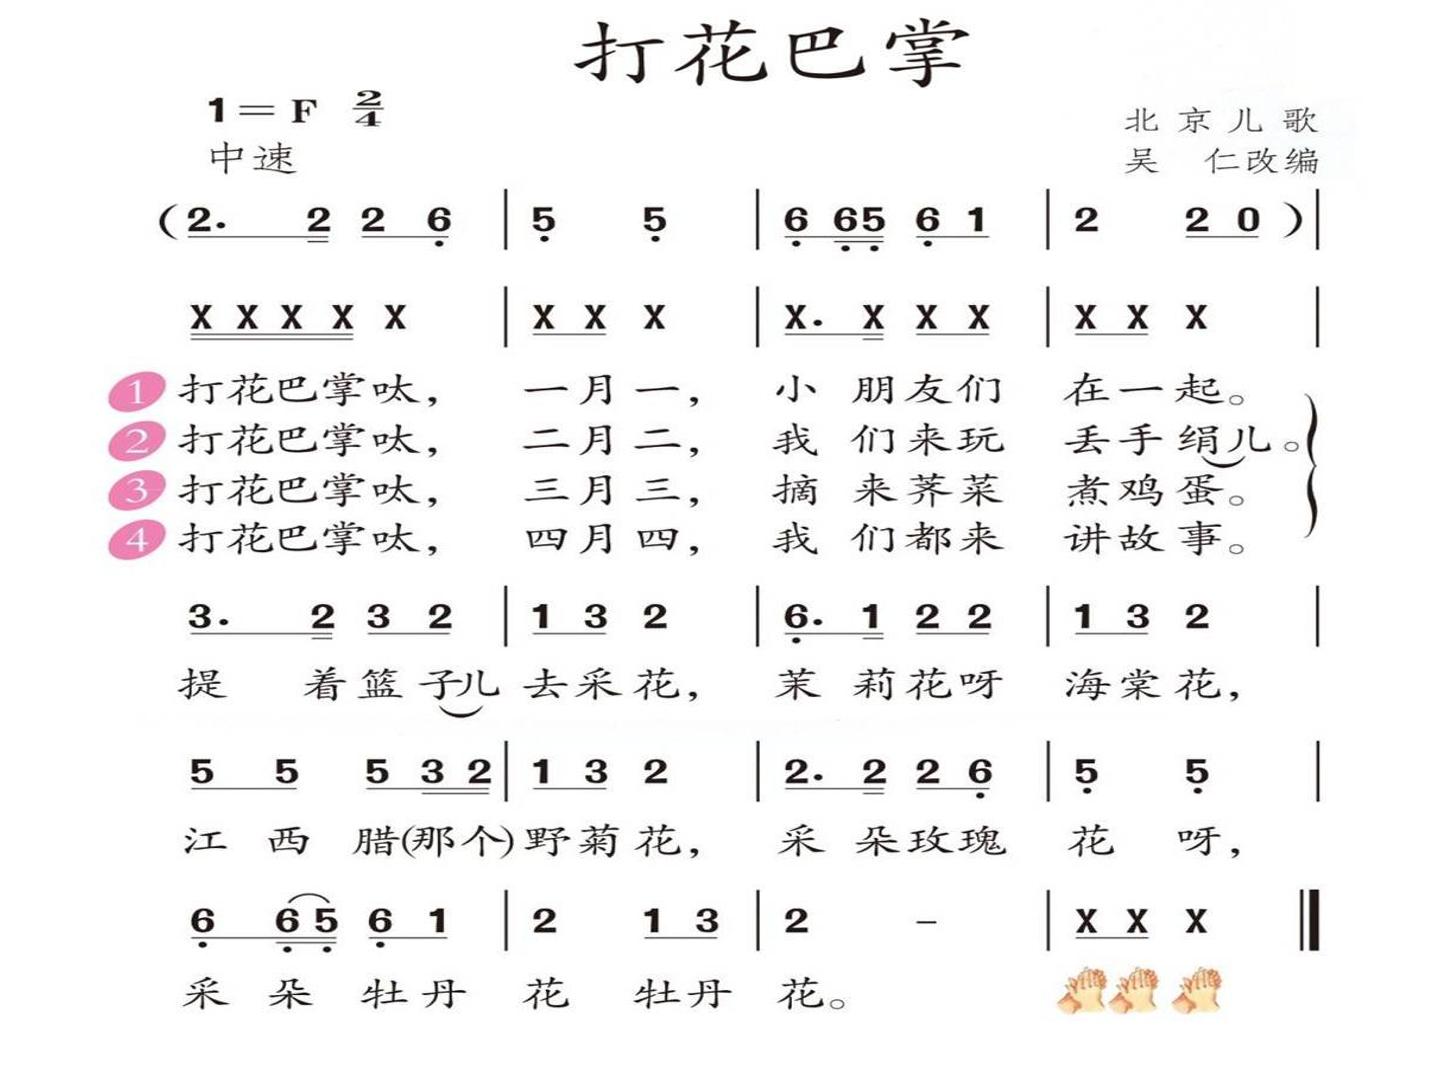 打花巴掌
1=F 2/4
北京儿歌
中速
吴 仁改编
(2. 2 2 6 | 5 5 | 6 65 6 1 | 2 2 0 ) |
X X X X X | X X X | X. X X X | X X X |
1 打花巴掌呔， 一月一， 小 朋友们 在一起。
2 打花巴掌呔， 二月二， 我 们来玩 丢手绢儿。
3 打花巴掌呔， 三月三， 摘 来荠菜 煮鸡蛋。
4 打花巴掌呔， 四月四， 我 们都来 讲故事。
3. 2 3 2 | 1 3 2 | 6. 1 2 2 | 1 3 2 |
提 着篮子儿 去采花， 茉 莉花呀 海棠花，
5 5 5 3 2 | 1 3 2 | 2. 2 2 6 | 5 5 |
江 西 腊(那个) 野菊花， 采 朵玫瑰 花 呀，
6 6 5 6 1 | 2 1 3 | 2 - | X X X ‖
采 朵 牡丹 花 牡丹 花。